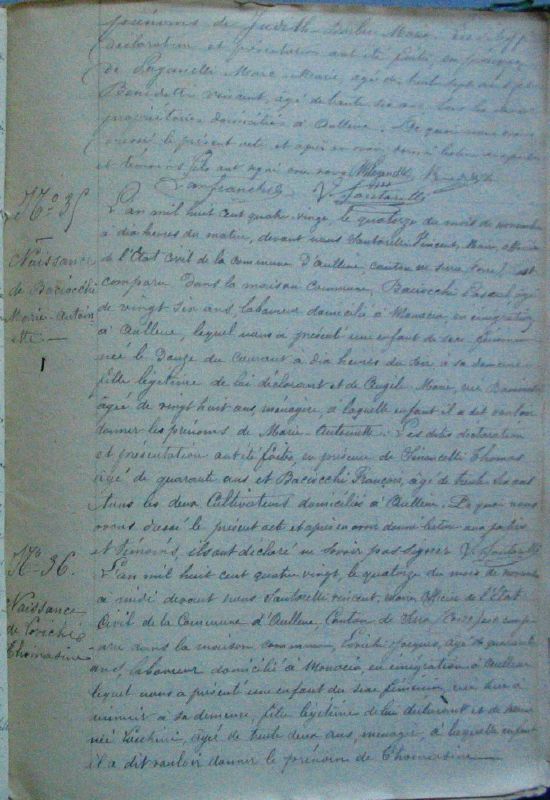 prénoms de Judith Marie. Les dites
déclaration et présentation ont été faites en présence
de Marc Marie, âgé de trente sept ans et de
Benedetti Vincent, âgé de trente six ans, tous les deux
propriétaires domiciliés à Aullène. De quoi nous avons
dressé le présent acte et après en avoir donné lecture aux parties
et témoins, ils ont signé avec nous
Lanfranchi V. Santarelli
N° 35
Naissance
de Baciocchi
Marie-Antoin
ette
1
L'an mil huit cent quatre vingt, le quatorze du mois de novembre
à dix heures du matin, devant nous Santarelli Vincent, Maire, officier
de l'Etat Civil de la commune d'Aullène, canton de Serra, Corse, est
comparu dans la maison commune, Baciocchi Pascal, âgé
de vingt six ans, laboureur domicilié à Monacia, en émigration
à Aullène, lequel nous a présenté un enfant de sexe féminin
née le douze du courant à dix heures du soir à sa demeure
fille légitime de lui déclarant et de Marie, née
âgée de vingt huit ans, ménagère, à laquelle enfant il a dit vouloir
donner les prénoms de Marie-Antoinette. Les dites déclaration
et présentation ont été faites en présence de Thomas
âgé de quarante ans et Baciocchi François, âgé de trente six ans
tous les deux cultivateurs domiciliés à Aullène. De quoi nous
avons dressé le présent acte et après en avoir donné lecture aux parties
et témoins, ils ont déclaré ne savoir pas signer V. Santarelli
N° 36.
Naissance
de Lovichi
Thomasine
L'an mil huit cent quatre vingt, le quatorze du mois de novembre
à midi devant nous Santarelli Vincent, Maire officier de l'Etat
Civil de la Commune d'Aullène, Canton de Serra, Corse, est comp
aru dans la maison commune, Lovichi Jacques, âgé de quarante
ans, laboureur domicilié à Monacia en émigration à Aullène
lequel nous a présenté un enfant du sexe féminin, née hier à
minuit à sa demeure, fille légitime de lui déclarant et de
née Lucchini, âgée de trente deux ans, ménagère, à laquelle enfant
il a dit vouloir donner le prénom de Thomasine